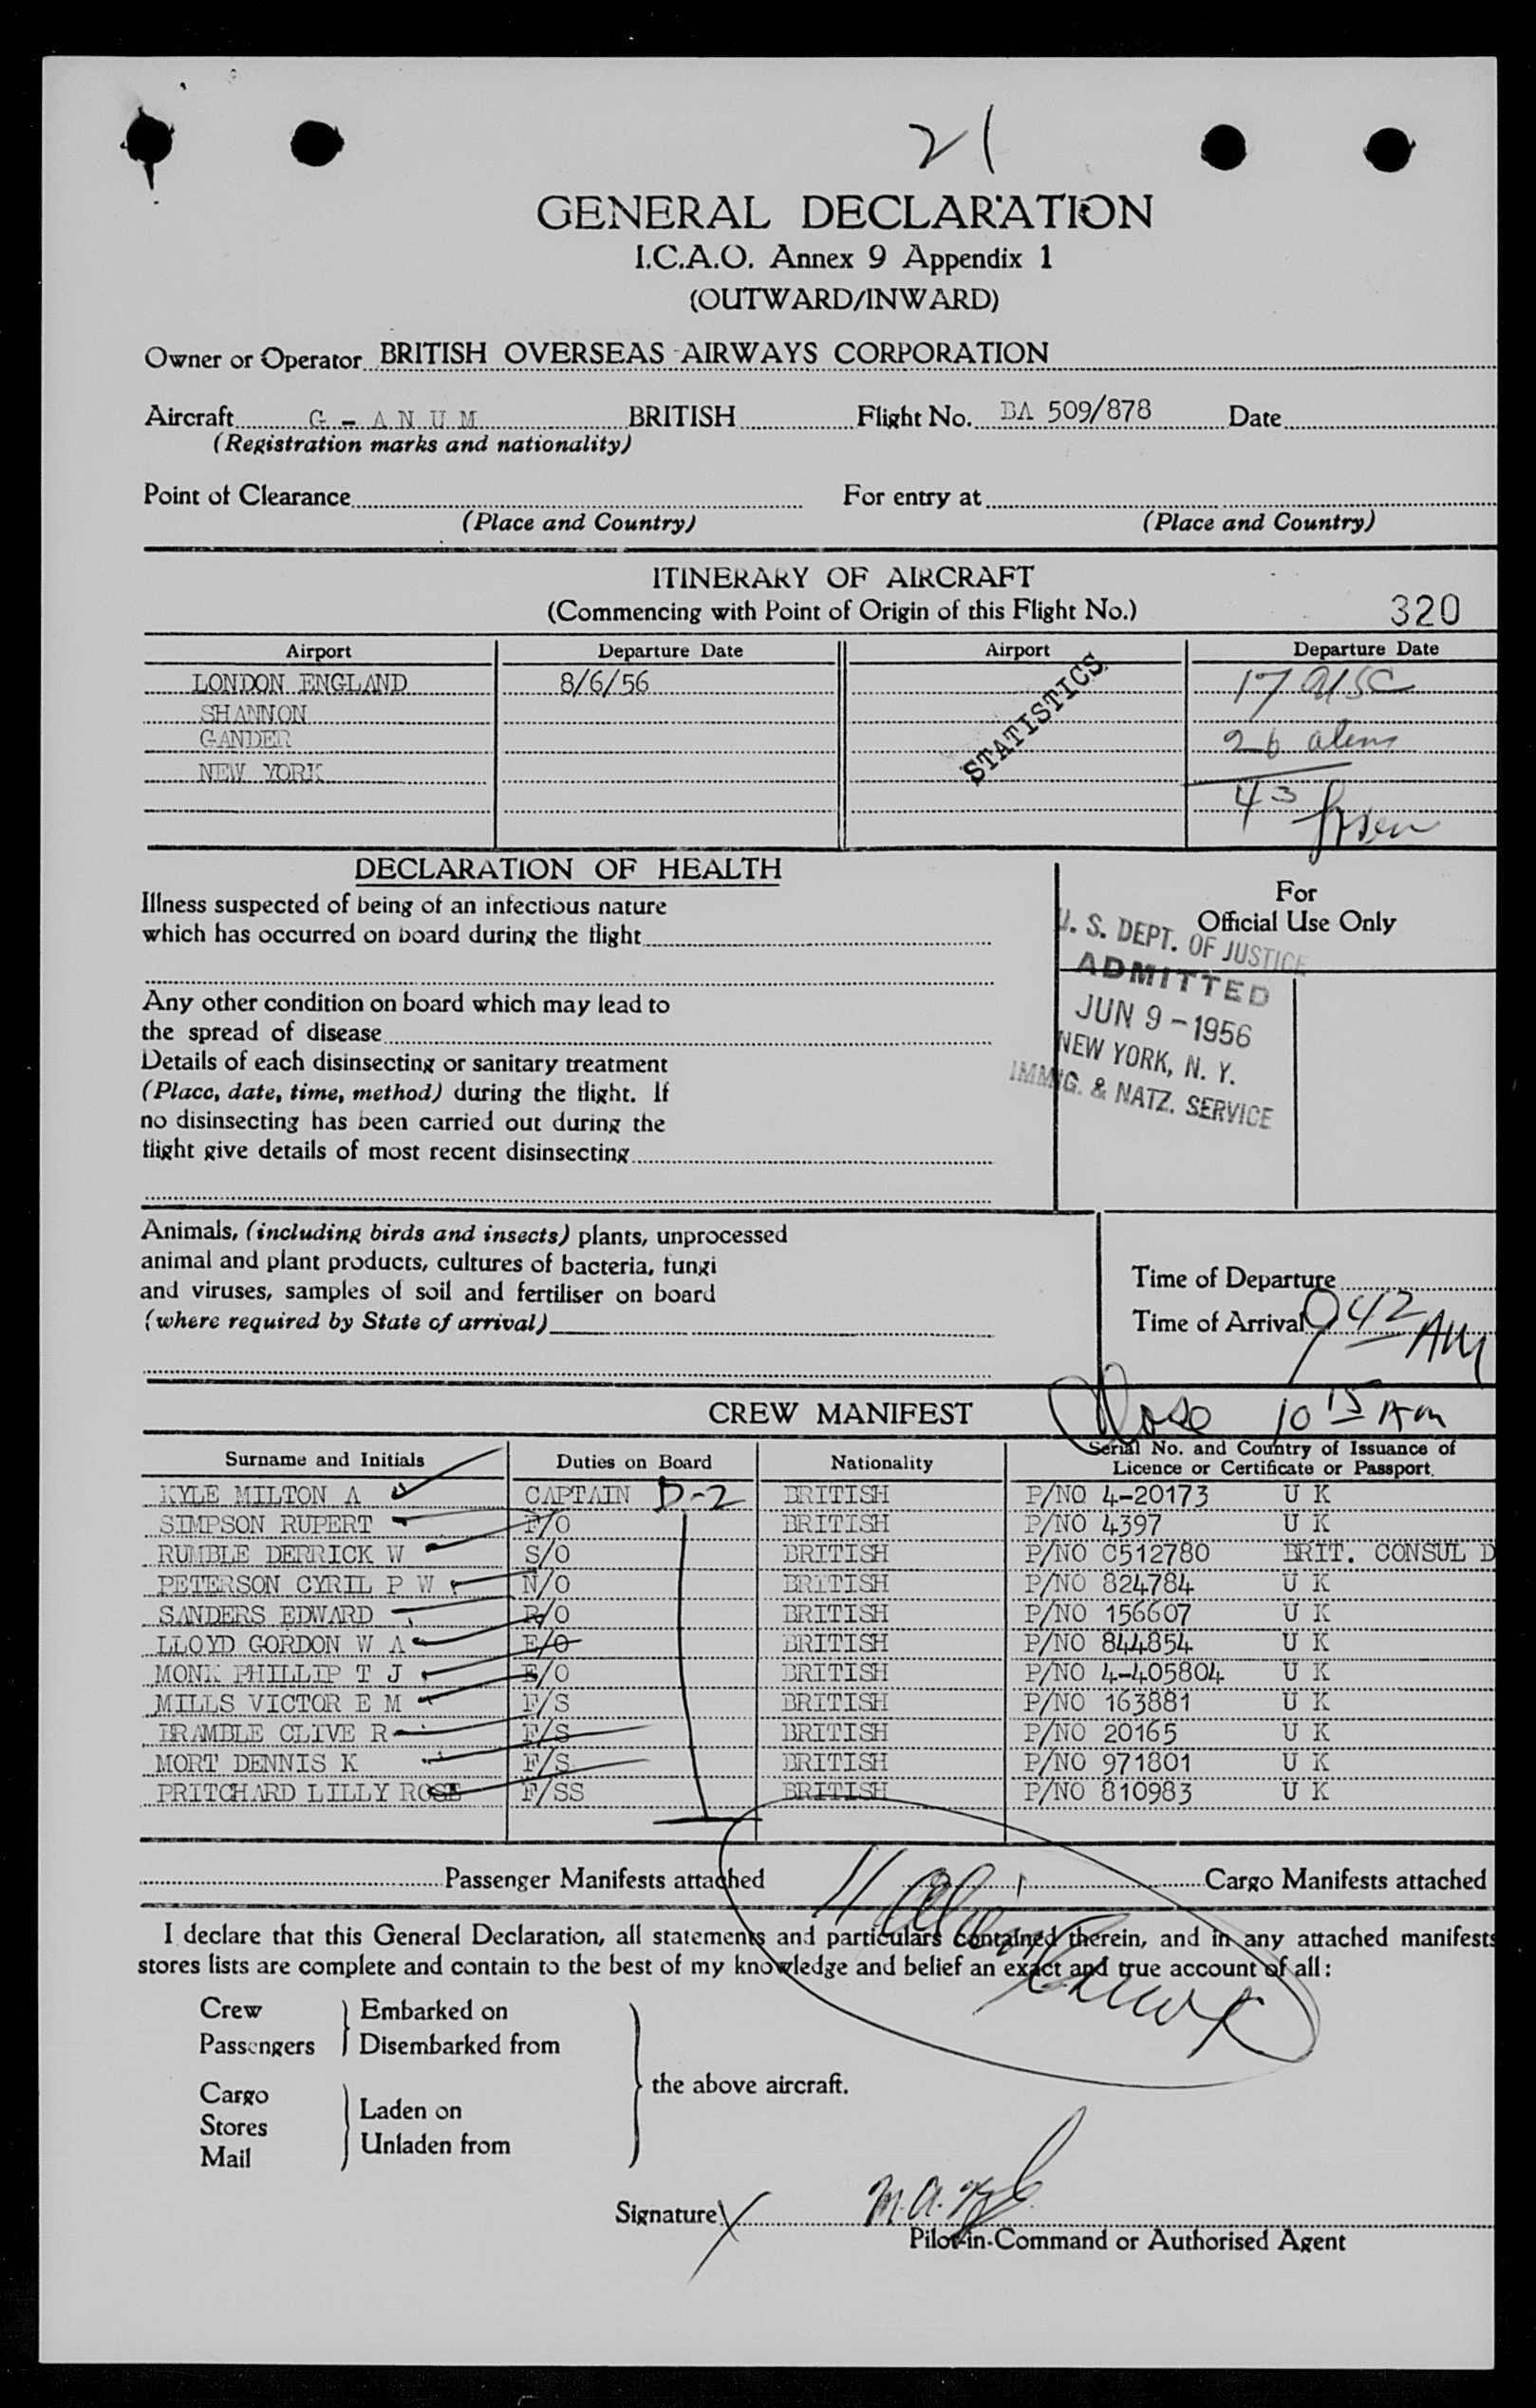 21
GENERAL DECLARATION
I.C.A.O. Annex 9 Appendix 1
(OUTWARD/INWARD)
Owner or Operator BRITISH OVERSEAS AIRWAYS CORPORATION
Aircraft G - A N U M BRITISH Flight No. BA 509/878 Date
(Registration marks and nationality)
Point of Clearance For entry at
(Place and Country) (Place and Country)
ITINERARY OF AIRCRAFT
(Commencing with Point of Origin of this Flight No.) 320
Airport Departure Date Airport Departure Date
LONDON ENGLAND 8/6/56 17 USC
SHANNON
GANDER 26 aliens
NEW YORK
STATISTICS
43
DECLARATION OF HEALTH
Illness suspected of being of an infectious nature
which has occurred on board during the flight
Any other condition on board which may lead to
the spread of disease
Details of each disinsecting or sanitary treatment
(Place, date, time, method) during the flight. If
no disinsecting has been carried out during the
flight give details of most recent disinsecting
For
Official Use Only
U. S. DEPT. OF JUSTICE
ADMITTED
JUN 9 - 1956
NEW YORK, N. Y.
IMMIG. & NATZ. SERVICE
Animals, (including birds and insects) plants, unprocessed
animal and plant products, cultures of bacteria, fungi
and viruses, samples of soil and fertiliser on board
(where required by State of arrival)
Time of Departure
Time of Arrival 9 42 AM
CREW MANIFEST Close 10 15 Am
Surname and Initials Duties on Board Nationality Serial No. and Country of Issuance of
Licence or Certificate or Passport.
KYLE MILTON A CAPTAIN D-2 BRITISH P/NO 4-20173 U K
SIMPSON RUPERT F/O BRITISH P/NO 4397 U K
RUMBLE DERRICK W S/O BRITISH P/NO C512780 BRIT. CONSUL D
PETERSON CYRIL P W N/O BRITISH P/NO 824784 U K
SANDERS EDWARD R/O BRITISH P/NO 156607 U K
LLOYD GORDON W A E/O BRITISH P/NO 844854 U K
MONK PHILLIP T J E/O BRITISH P/NO 4-405804 U K
MILLS VICTOR E M F/S BRITISH P/NO 163881 U K
BRAMBLE CLIVE R F/S BRITISH P/NO 20165 U K
MORT DENNIS K F/S BRITISH P/NO 971801 U K
PRITCHARD LILLY ROSE F/SS BRITISH P/NO 810983 U K
Passenger Manifests attached Cargo Manifests attached
11 Alien Crew
I declare that this General Declaration, all statements and particulars contained therein, and in any attached manifests
stores lists are complete and contain to the best of my knowledge and belief an exact and true account of all:
Crew Embarked on
Passengers Disembarked from
the above aircraft.
Cargo
Stores Laden on
Mail Unladen from
Signature M. A. Kyle
Pilot-in-Command or Authorised Agent